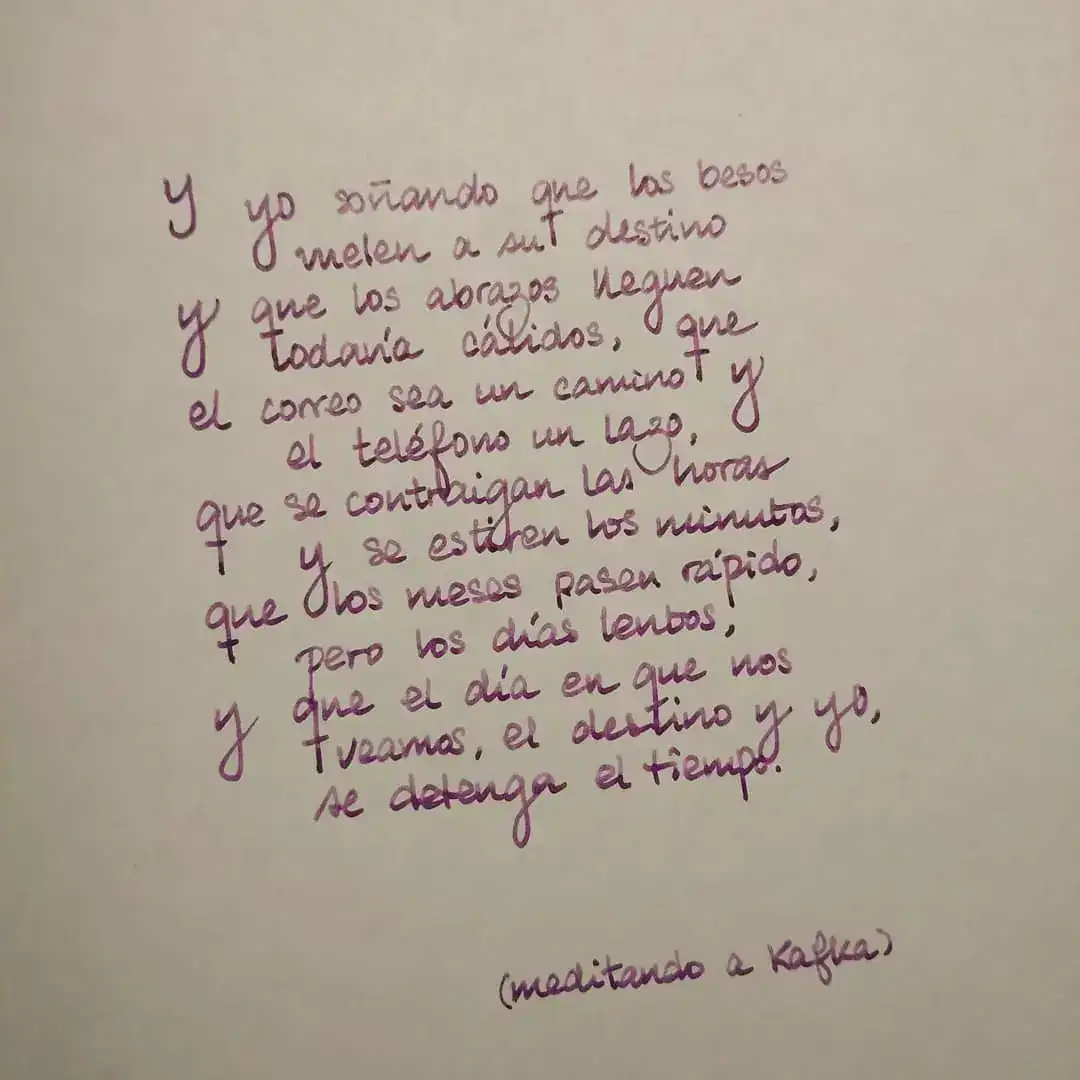 Y yo soñando que los besos
vuelen a su destino
y que los abrazos lleguen
todavía cálidos, que
el correo sea un camino y
el teléfono un lazo,
que se contraigan las horas
y se estiren los minutos,
que los meses pasen rápido,
pero los días lentos,
y que el día en que nos
veamos, el destino y yo,
se detenga el tiempo.
(meditando a Kafka)